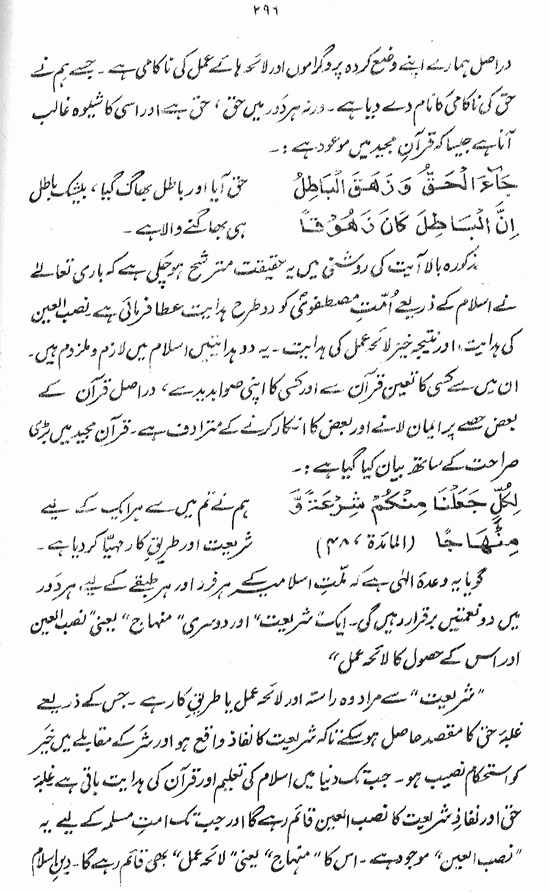 ۲۹۶
دراصل ہمارے اپنے وضع کردہ پروگراموں اور لائحہ ہائے عمل کی ناکامی ہے۔ جسے ہم نے
حق کی ناکامی کا نام دے دیا ہے۔ ورنہ ہر دَور میں حق ، حق ہے اور اسی کا شیوہ غالب
آنا ہے جیسا کہ قرآنِ مجید میں موعود ہے :۔
جَاءَ الْحَقُّ وَ زَهَقَ الْبَاطِلُ حق آیا اور باطل بھاگ گیا ، بیشک باطل
اِنَّ الْبَاطِلَ كَانَ زَهُوْقًا ہی بھاگنے والا ہے ۔
مذکورہ بالا آیت کی روشنی میں یہ حقیقت مترشح ہو چکی ہے کہ باری تعالےٰ
نے اسلام کے ذریعے اُمّتِ مصطفویؐ کو دو طرح ہدایت عطا فرمائی ہے نصب العین
کی ہدایت ، اور نتیجہ خیز لائحہ عمل کی ہدایت ۔ یہ دو ہدایتیں اسلام میں لازم و ملزوم ہیں۔
ان میں سے کسی کا تعین قرآن سے اور کسی کا اپنی صوابدید سے ، دراصل قرآن کے
بعض حصے پر ایمان لانے اور بعض کا انکار کرنے کے مترادف ہے۔ قرآن مجید میں بڑی
صراحت کے ساتھ بیان کیا گیا ہے :۔
لِكُلٍّ جَعَلْنَا مِنْكُمْ شِرْعَةً وَّ ہم نے تم میں سے ہر ایک کے لیے
مِنْهَاجًا (المائدۃ ۴۸٬) شریعت اور طریقِ کار مہیّا کر دیا ہے ۔
گویا یہ وعدۂ الٰہی ہے کہ ملّتِ اسلامیہ کے ہر فرد اور ہر طبقے کے لیے ہر دَور
میں دو نعمتیں برقرار رہیں گی۔ ایک "شریعت" اور دوسری "منہاج" یعنی "نصب العین
اور اس کے حصول کا لائحہ عمل"
"شریعت" سے مراد وہ راستہ اور لائحہ عمل یا طریقِ کار ہے ۔ جس کے ذریعے
غلبۂ حق کا مقصد حاصل ہو سکے تاکہ شریعت کا نفاذ واقع ہو اور شر کے مقابلے میں خیر
کو استحکام نصیب ہو ۔ جب تک دنیا میں اسلام کی تعلیم اور قرآن کی ہدایت باقی ہے غلبۂ
حق اور نفاذِ شریعت کا نصب العین قائم رہے گا اور جب تک امتِ مسلمہ کے لیے یہ
"نصب العین" موجود ہے ۔ اس کا "منہاج" یعنی "لائحہ عمل" بھی قائم رہے گا۔ دینِ اسلام